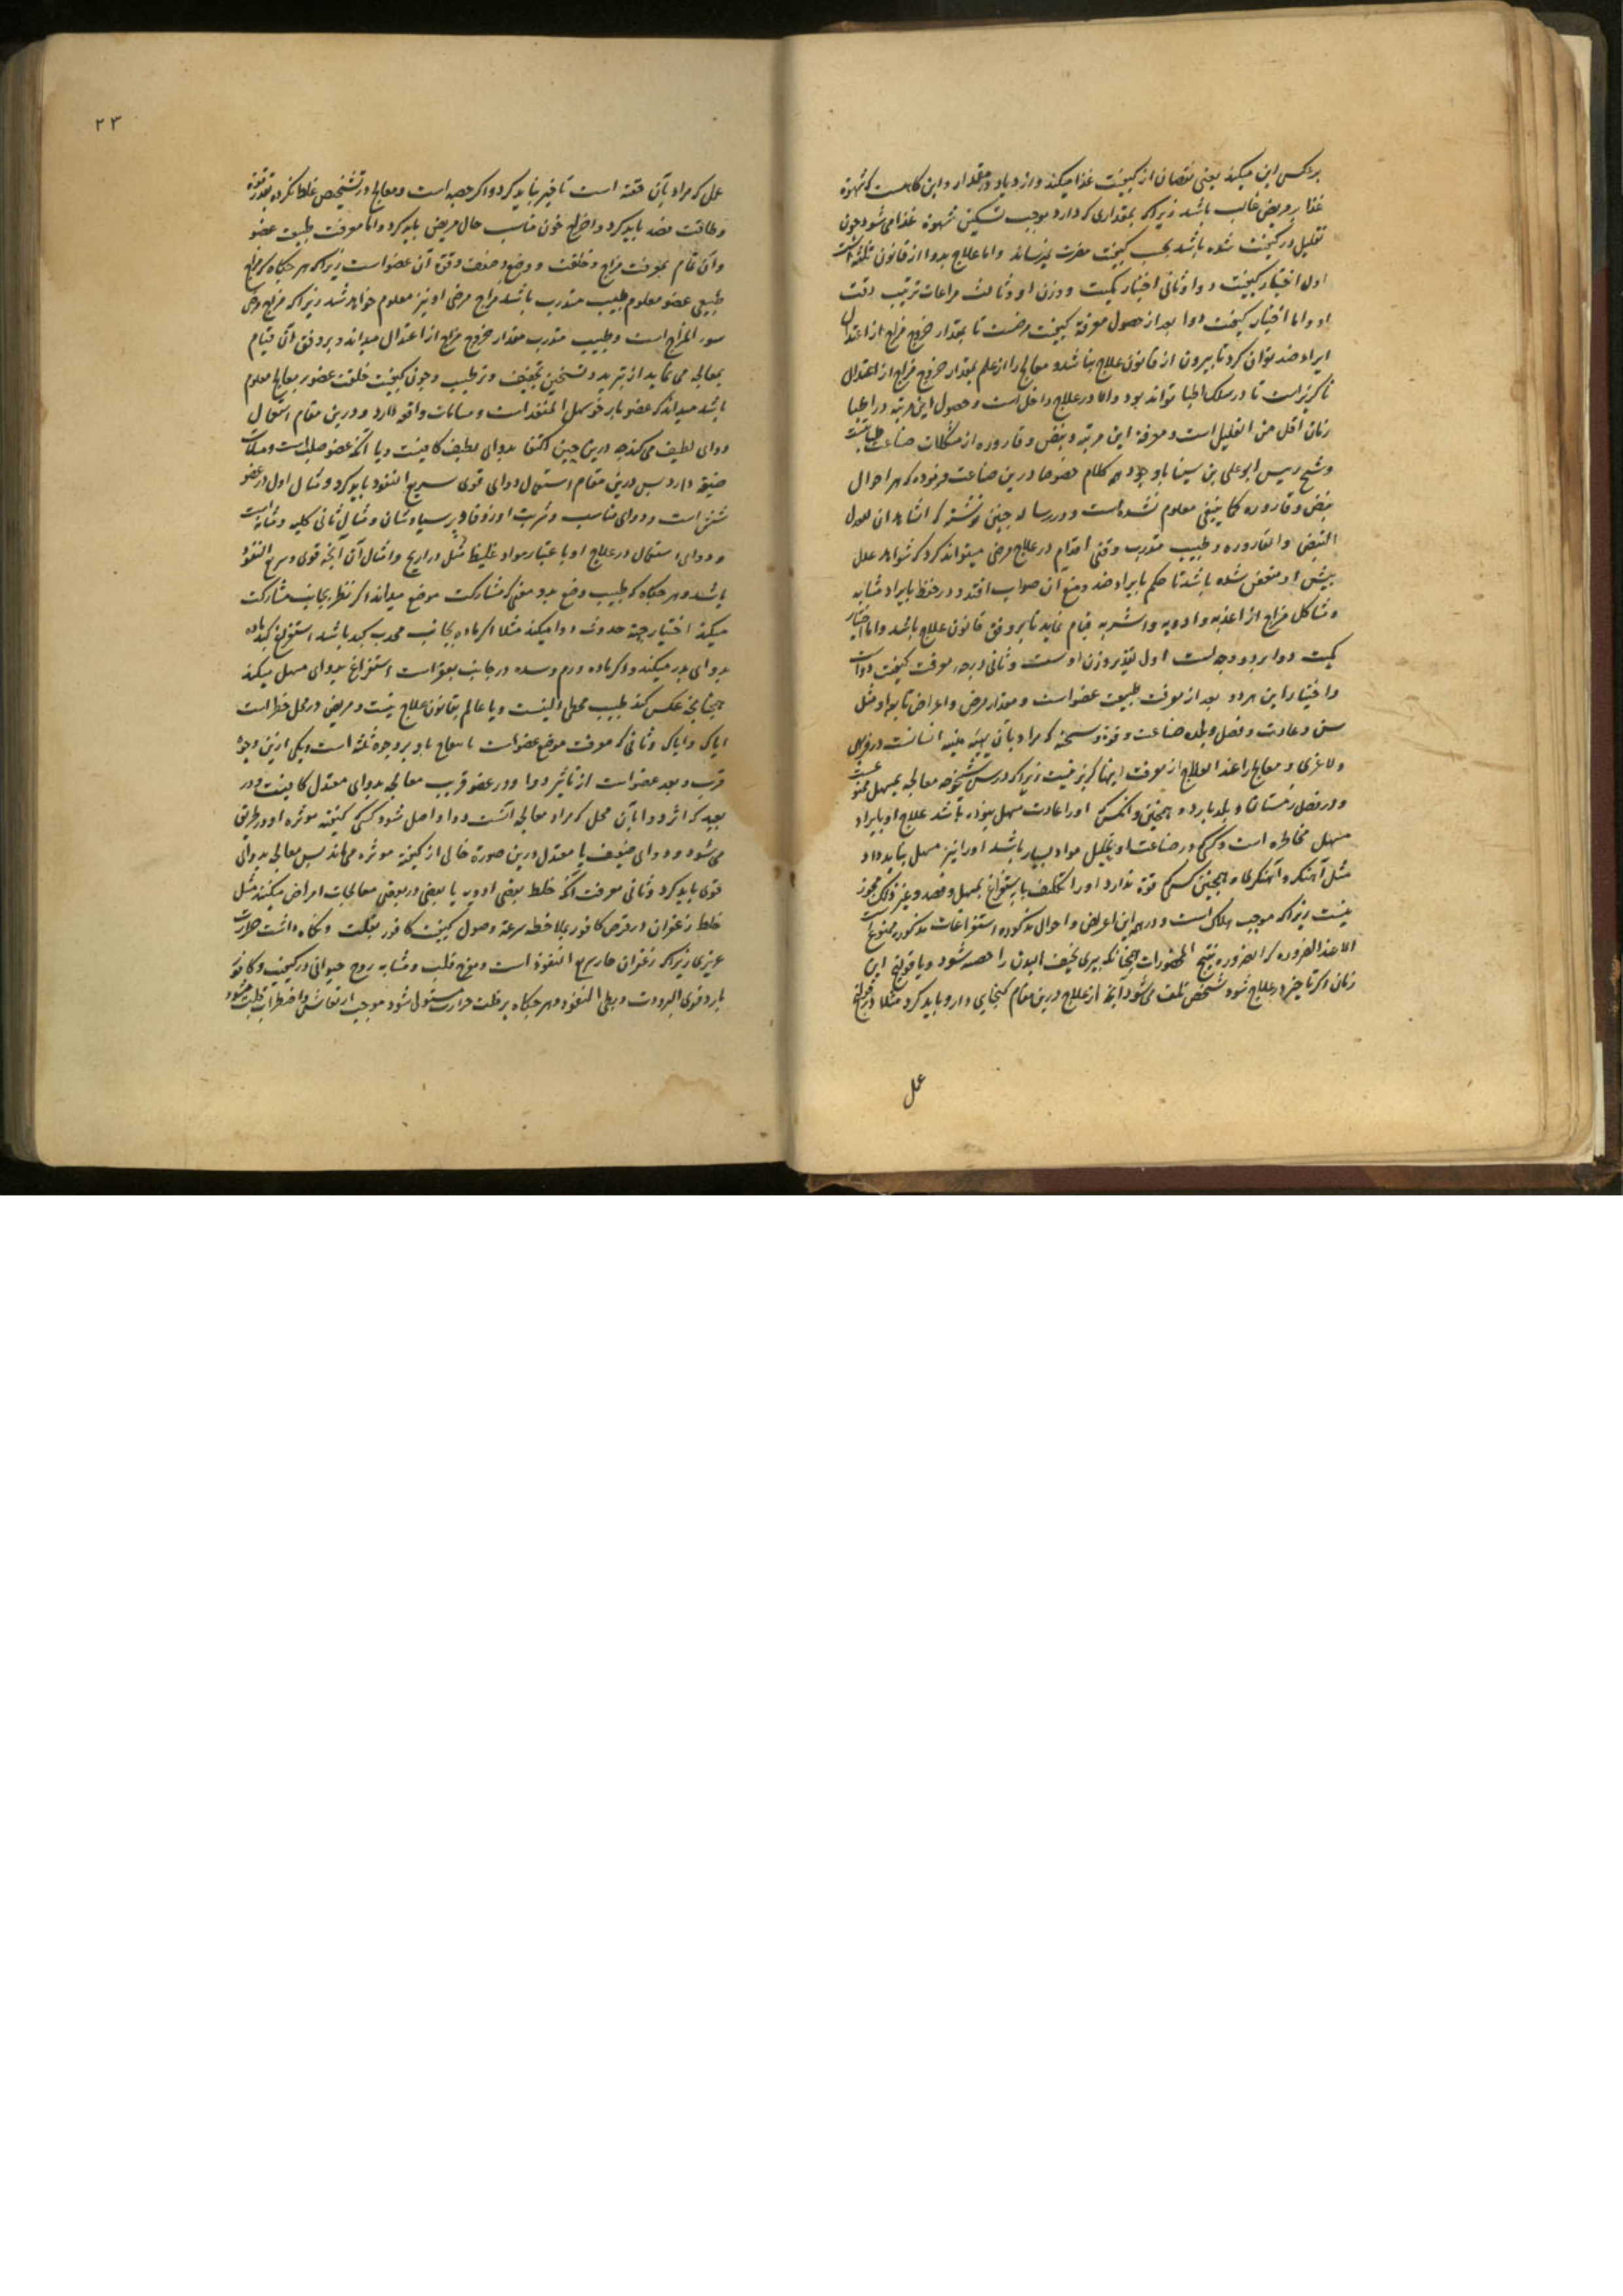 برعکس این میکند یعنی نقصان از کیفیت غذا میکند و ازدیاد در مقدار و این گاهست که شهوة
غذا بر مریض غالب باشد زیرا که بمقداری که دارد موجب تسکین شهوة غذا می شود و چون
تقلیل در کیفیت شده باشد بحسب کیفیت مضرت نمیرساند و اما علاج بدوا از قانون ثلثه است
اول اختیار کیفیت دوا و ثانی اختیار کمیت و وزن او و ثالث مراعات ترتیب وقت
او و اما اختیار کیفیت دوا بعد از حصول معرفة کیفیت مرضست تا بمقدار خروج مزاج از اعتدال
ایراد ضد توان کرد تا بیرون از قانون علاج نباشد و معالج را از علم بمقدار خروج مزاج از اعتدال
ناگزیر است تا در سلک اطبا تواند بود و الا در علاج داخل است و حصول این مرتبه در اطبا
زمان اقل من القلیل است و معرفة این مرتبه و نبض و قاروره از مشکلات صناعت طبابتست
و شیخ رییس ابو علی بن سینا با وجود همه کلام خصوصا درین صناعت فرموده که مرا احوال
نبض و قاروره کما ینبغی معلوم نشده است و در رساله چنین نوشته که الشاهدان العدل
النبض و القاروره و طبیب متدرب وقتی اقدام در علاج مرضی میتواند کرد که شواهد علل
پیش او مفحص شده باشد تا حکم بایراد ضد و منع آن صواب افتد و در حفظ بایراد مشابه
و مشاکل مزاج از اغذیه و ادویه و اشربه قیام نماید تا بر وفق قانون علاج باشد و اما اختیار
کمیت دوا بر دو وجه است اول تقدیر وزن اوست و ثانی درجه معرفت کیفیت دواست
و اختیار این هر دو بعد از معرفت طبیعت عضو است و مقدار مرض و اعراض تا بواد مثل
سن و عادت و فصل و بلد و صناعت و قوة و سحنه که مراد بآن هیئة بنیه انسانست در فربهی
و لاغری و معالج را عند العلاج از معرفت اینها گریز نیست زیرا که در سن شیخوخه معالجه بمسهل ممنوعست
و در فصل زمستان و بلد بارد و همچنین و آنکس که او را عادت مسهل نبوده باشد علاج او بایراد
مسهل مخاطره است و کسی که در صناعت او تحلیل مواد بسیار باشد او را نیز مسهل نباید داد
مثل آهنگر و آهنگرگاه و همچنین کسی که قوة ندارد او را تکلیف باستفراغ بمسهل و فصد و غیر ذلک مجوز
نیست زیرا که موجب هلاک است و درین امراض و احوال مذکوره استفراغات مذکوره ممنوع است
الا عند الضروره که الضروره تبیح المحظورات چنانکه پیری نحیف البدن را حصبه شود و یا قولنج این
زمان اگر تاخیر در علاج شود شخص تلف می شود اینجا از علاج درین مقام گنجایی دارد باید کرد مثلا در قولنج
عمل
۲۳
عمل که مراد بآن حقنه است تاخیر نباید کرد و اگر حصبه است و معالج در تشخیص غلط نکرده بقدر قوة
و طاقت فصد باید کرد و اخراج خون مناسب حال مریض باید کرد و اما معرفت طبیعت عضو
و آن تمام بمعرفت مزاج و خلقت و وضع و ضعف و قوة آن عضو است زیرا که هر جکاه که مزاج
طبیعی عضو معلوم طبیب متدرب باشد مزاج مرضی او نیز معلوم خواهد شد زیرا که مزاج مرضی
سوء المزاج است و طبیب متدرب مقدار خروج مزاج از اعتدال میداند و بر وفق آن قیام
بمعالجه می نماید از تبرید و تسخین و تجفیف و ترطیب و چون کیفیت خلقت عضو بر معالج معلوم
باشد میداند که عضو بابر خو سهل المنفذ است و مسامات واقع دارد و درین مقام استعمال
دوای لطیف می کند چه درین چنین اکتفا بدوای لطیف کافیست و یا آنکه عضو صلب است و مسامات
ضیق دارد پس درین مقام استعمال دوای قوی سریع النفوذ باید کرد و مثال اول در عضو
شش است و دوای مناسب و شربت او زوفا و پر سیاوشان و مثال ثانی کلیه و مثانه است
و دوای استعمال در علاج او با عتبار مواد غلیظ مثل ذراریح و امثال آن آنچه قوی و سریع النفوذ
باشد و هر جکاه که طبیب وضع بدو معنی که مشارکت موضع میداند اگر نظر بجانب مشارکت
میکند اختیار جهة حدوث دوا میکند مثلا اگر ماده بجانب محدب کبد باشد استفراغ کبد ماده
بدوای مدر میکند و اگر ماده ورم و سده در جانب مقعر است استفراغ بدوای مسهل میکند
چنانچه عکس کند طبیب مجهل الیست و یا عالم بقانون علاج نیست و مریض در محل خطر است
ایاک و ایاک و ثانی که معرفت موضع عضو است بر وجوه ثلثه است و یکی ازین وجوه
قرب و بعد عضو است از تأثیر دوا و در عضو قریب معالجه بدوای معتدل کافیست و در
بعید که اثر دوا بآن محل که مراد معالجه آنست دوا واصل شود کسی کیفیة موثره او در طریق
می شود و دوای ضعیف یا معتدل درین صورة خالی از کیفیة موثره می ماند پس معالجه بدوای
قوی باید کرد و ثانی معرفت آنکه خلط بعضی ادویه با بعضی در بعضی معالجات امراض میکنند مثل
خلط زعفران در قرص کافور بملاحظه سرعة وصول کیفیت کافور بقلب و نگاه داشت حرارت
عزیزی زیرا که زعفران حار سریع النفوذ است و مفرح قلب و مشابه روح حیوانی در کیفیت و کافور
بارد قوی البرودت و بطی النفوذ و هر جکاه بر قلت حرارت مستولی شود موجب ارتعاش و اضطراب قلب میشود